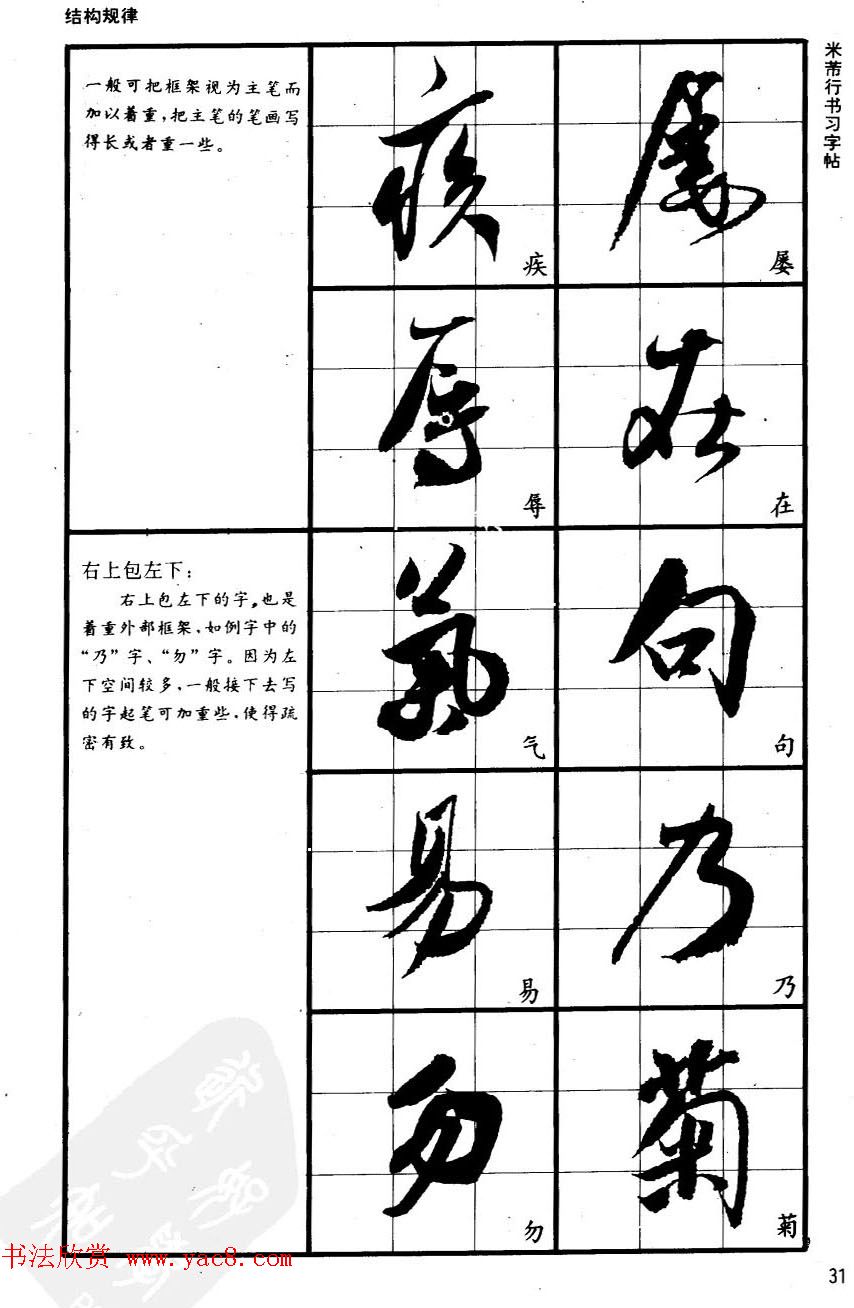 结构规律
米芾行书习字帖
屡
在
疾
辱
一般可把框架视为主笔而
加以着重,把主笔的笔画写
得长或者重一些。
句
乃
菊
气
易
勿
右上包左下:
右上包左下的字,也是
着重外部框架,如例字中的
“乃”字、“勿”字。因为左
下空间较多,一般接下去写
的字起笔可加重些,使得疏
密有致。
书法欣赏 www.yac8.com
31